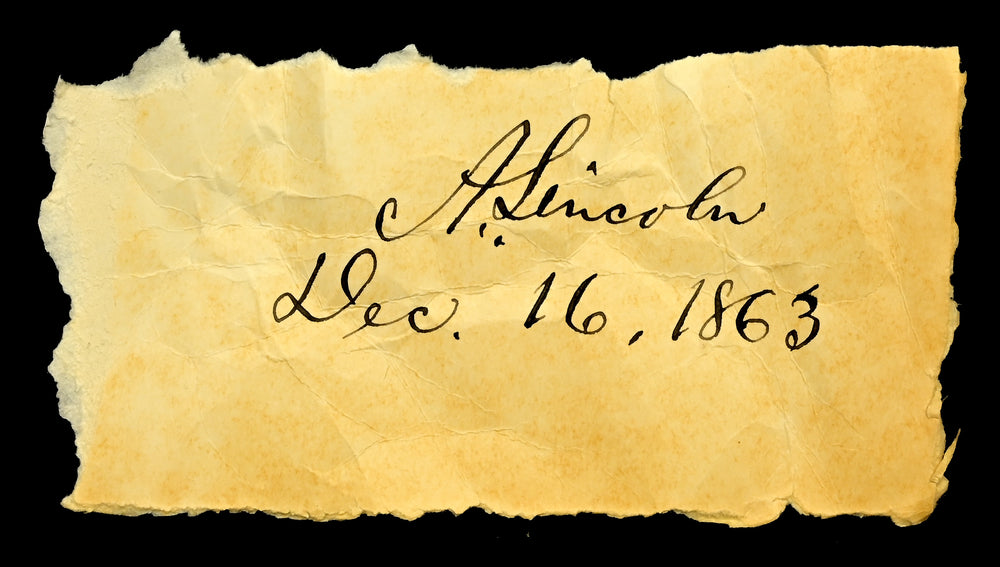 A. Lincoln
Dec. 16, 1863